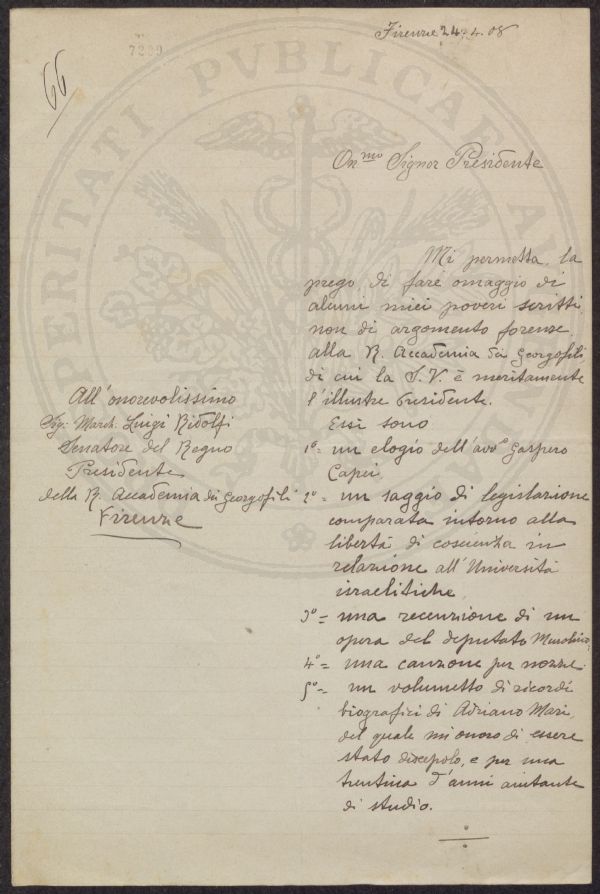 Firenze 24. 4. 08
7289
66
PERITATI PVBLICAE
On.mo Signor Presidente
Mi permetta, la
prego, di fare omaggio di
alcuni miei poveri scritti
non di argomento forense
alla R. Accademia dei Georgofili
di cui la S. V. è meritamente
l'illustre Presidente.
Essi sono
1º = un elogio dell'avvº Gaspero
Capei
2º = un saggio di legislazione
comparata intorno alla
libertà di coscienza in
relazione all'Università
israelitiche
3º = una recenzione di un
opera del deputato
4º = una canzone per nozze.
5º = un volumetto di ricordi
biografici di Adriano Mari,
del quale mi onoro di essere
stato discepolo, e per una
trentina d'anni aiutante
di studio.
All'onorevolissimo
Sig: March. Luigi Ridolfi
Senatore del Regno
Presidente
della R. Accademia dei Georgofili
Firenze